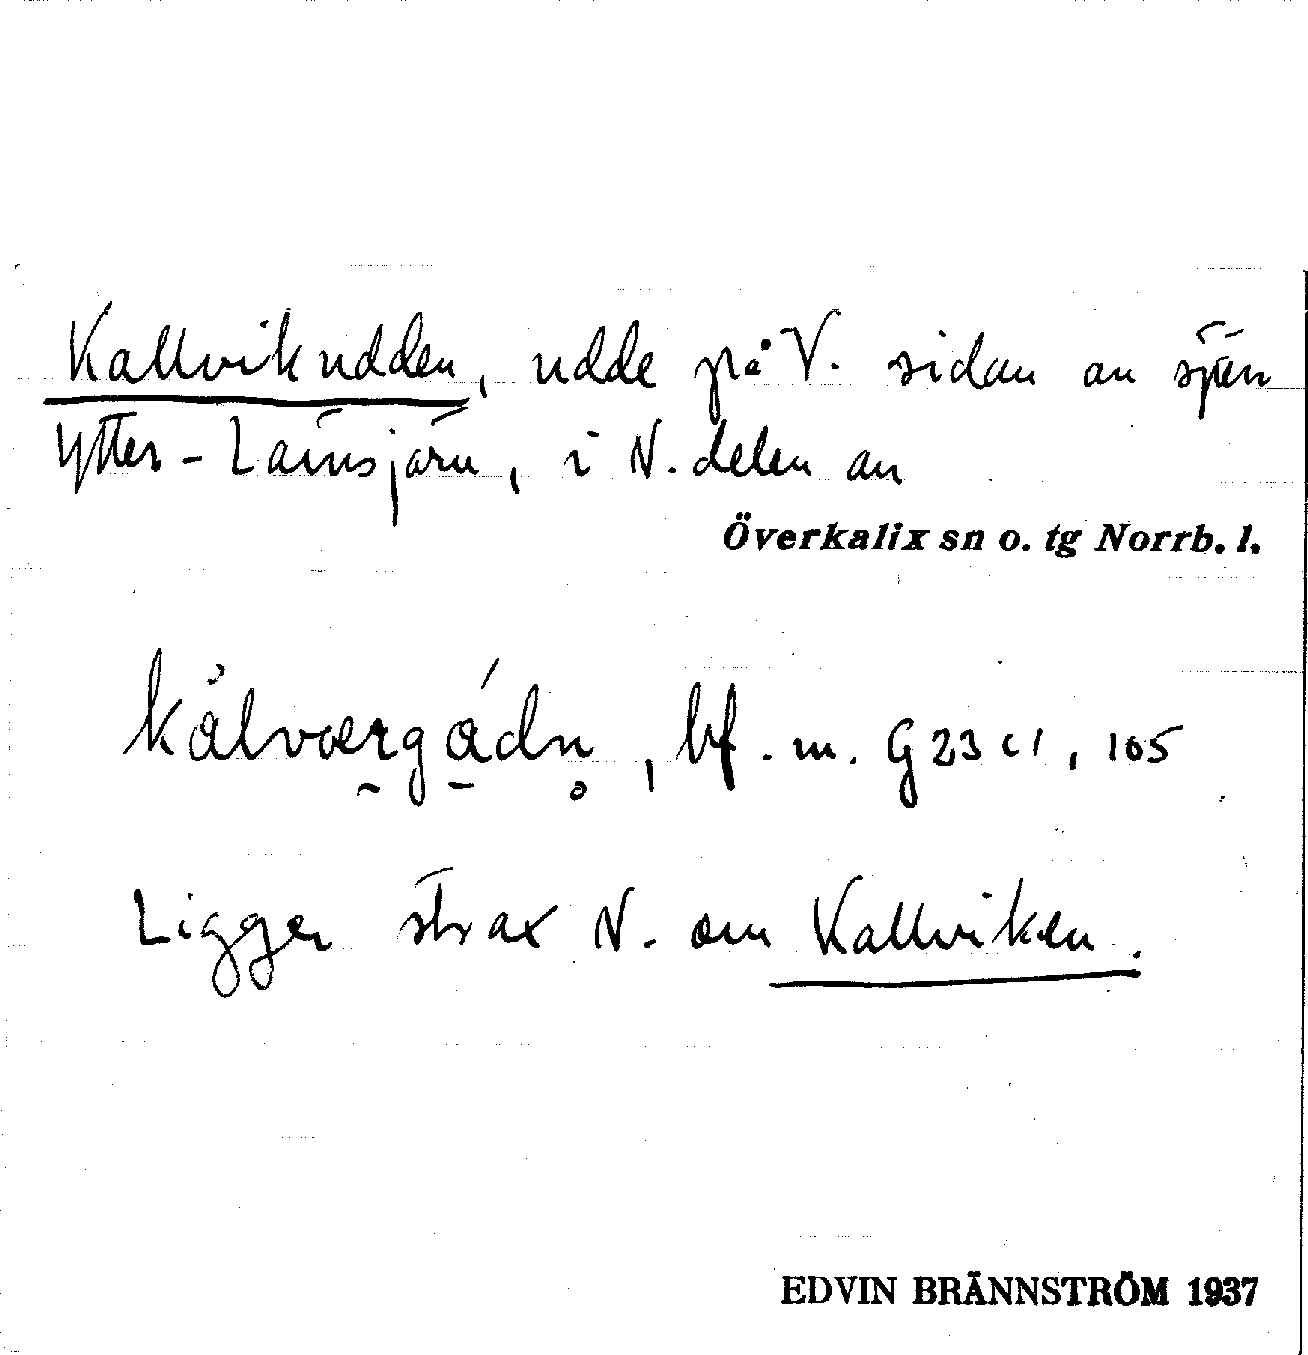 Kallvikudden, udde på V. sidan av sjön
Ytter-Lainsjärv, i N. delen av
Överkalix sn o. tg Norrb. l.
bf. m. G 23 c 1, 105
Ligger strax N. om Kallviken.
EDVIN BRÄNNSTRÖM 1937